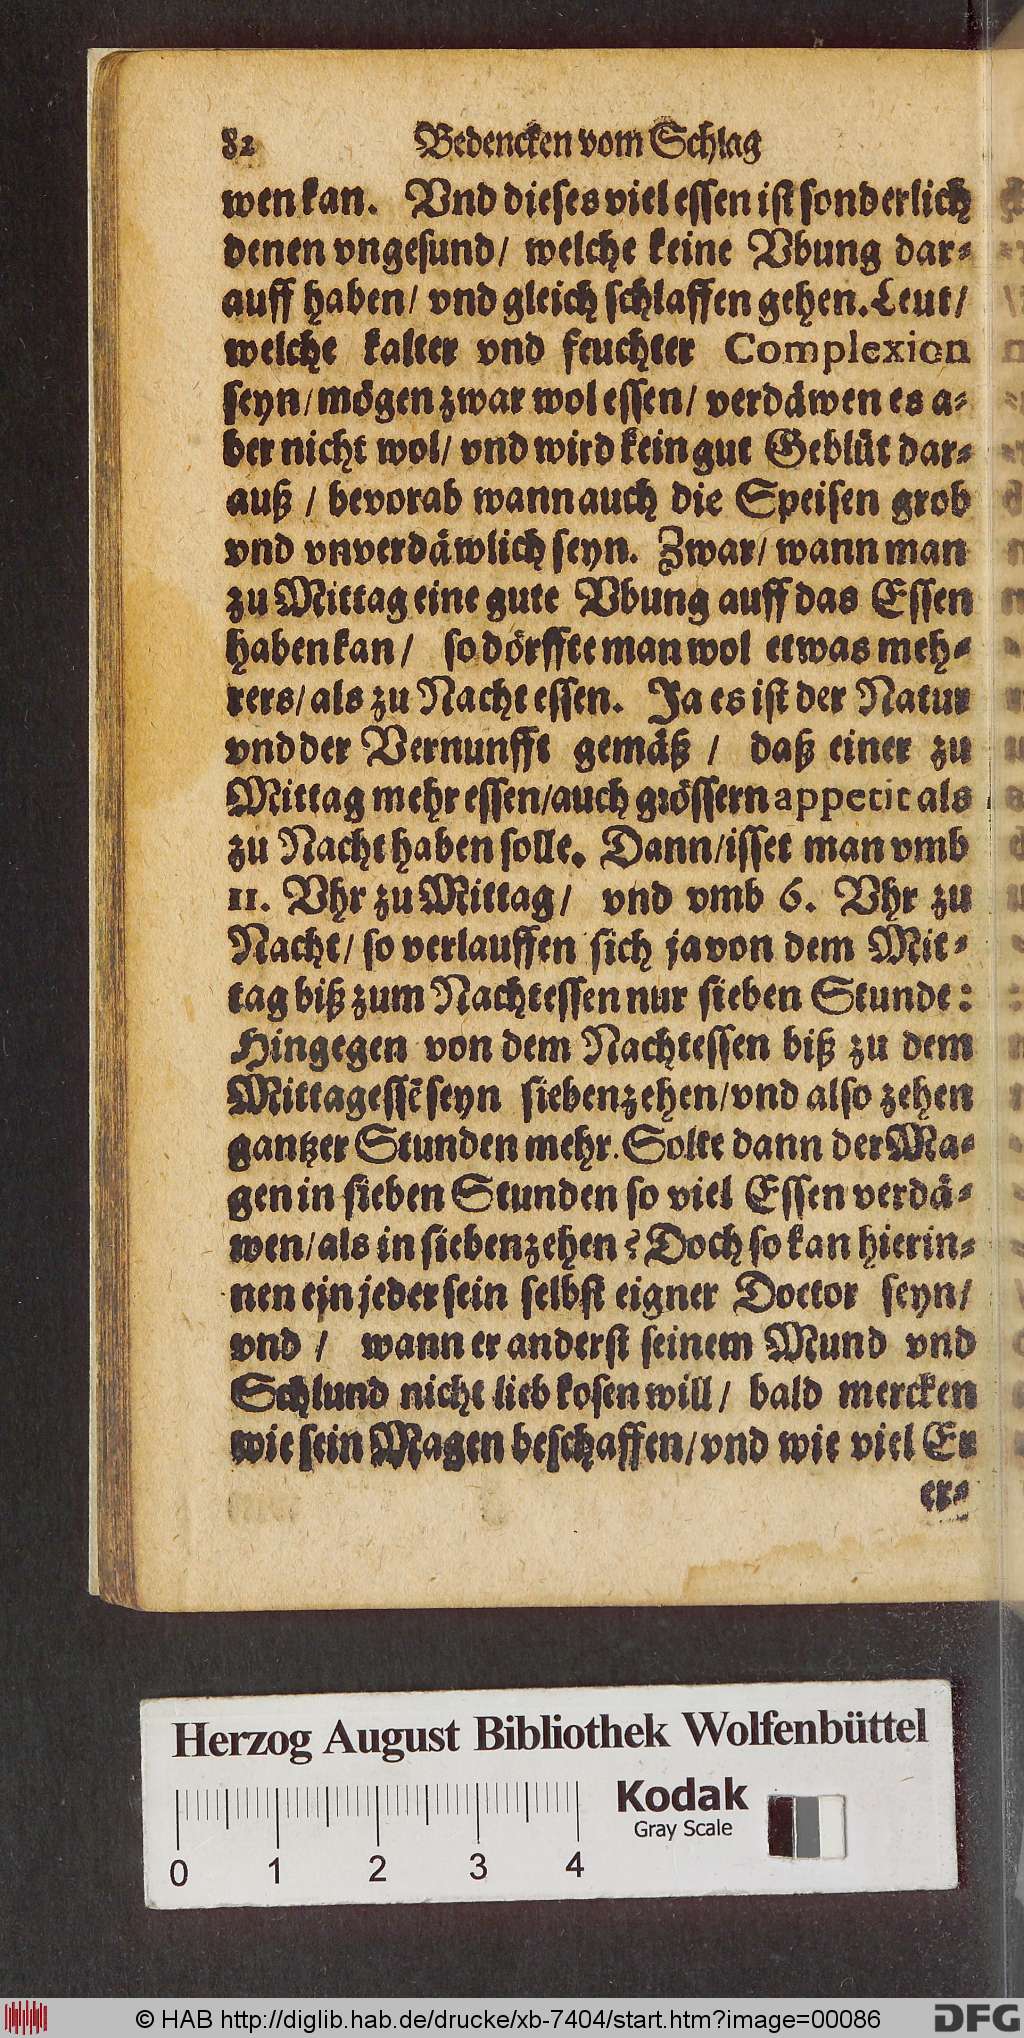 82 Bedencken vom Schlag
wen kan. Vnd dieses viel essen ist sonderlich
denen vngesund/ welche keine Vbung dar-
auff haben/ vnd gleich schlaffen gehen. Leut/
welche kalter vnd feuchter Complexion
seyn/ mögen zwar wol essen/ verdäwen es a-
ber nicht wol/ vnd wird kein gut Geblüt dar-
auß / bevorab wann auch die Speisen grob
vnd vnverdäwlich seyn. Zwar/ wann man
zu Mittag eine gute Vbung auff das Essen
haben kan/ so dörffte man wol etwas meh-
rers/ als zu Nacht essen. Ja es ist der Natur
vnd der Vernunfft gemäß / daß einer zu
Mittag mehr essen/auch grössern appetit als
zu Nacht haben solle. Dann/isset man vmb
11. Vhr zu Mittag/ vnd vmb 6. Vhr zu
Nacht/ so verlauffen sich ja von dem Mit-
tag biß zum Nachtessen nur sieben Stunde:
Hingegen von dem Nachtessen biß zu dem
Mittagessē seyn siebenzehen/vnd also zehen
gantzer Stunden mehr. Solte dann der Ma-
gen in sieben Stunden so viel Essen verdä-
wen/als in siebenzehen? Doch so kan hierin-
nen ein jeder sein selbst eigner Doctor seyn/
vnd / wann er anderst seinem Mund vnd
Schlund nicht liebkosen will/ bald mercken
wie sein Magen beschaffen/vnd wie viel Er
er-
Herzog August Bibliothek Wolfenbüttel
Kodak
Gray Scale
0 1 2 3 4
© HAB http://diglib.hab.de/drucke/xb-7404/start.htm?image=00086
DFG